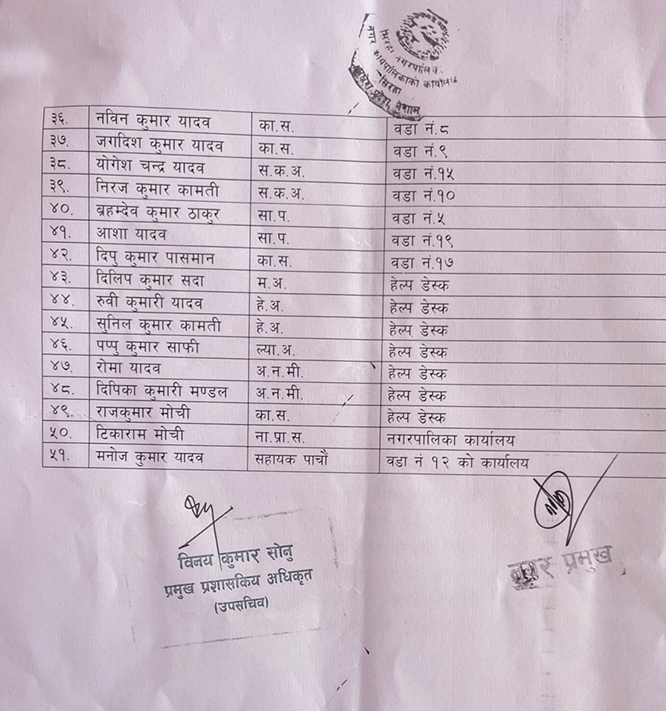 सिरहा नगरपालिका
नगर कार्यपालिकाको कार्यालय
सिरहा
३६. नविन कुमार यादव का.स. वडा नं.८
३७. जगदिश कुमार यादव का.स. वडा नं.९
३८. योगेश चन्द्र यादव स.क.अ. वडा नं.१५
३९. निरज कुमार कामती स.क.अ. वडा नं.१०
४०. ब्रहम्देव कुमार ठाकुर सा.प. वडा नं.५
४१. आशा यादव सा.प. वडा नं.१९
४२. दिपु कुमार पासमान का.स. वडा नं.१७
४३. दिलिप कुमार सदा म.अ. हेल्प डेस्क
४४. रुवी कुमारी यादव हे.अ. हेल्प डेस्क
४५. सुनिल कुमार कामती हे.अ. हेल्प डेस्क
४६. पप्पु कुमार साफी ल्या.अ. हेल्प डेस्क
४७. रोमा यादव अ.न.मी. हेल्प डेस्क
४८. दिपिका कुमारी मण्डल अ.न.मी. हेल्प डेस्क
४९. राजकुमार मोची का.स. हेल्प डेस्क
५०. टिकाराम मोची ना.प्रा.स. नगरपालिका कार्यालय
५१. मनोज कुमार यादव सहायक पाचौ वडा नं १२ को कार्यालय
विनय कुमार सोनु
प्रमुख प्रशासकिय अधिकृत
(उपसचिव)
नगर प्रमुख